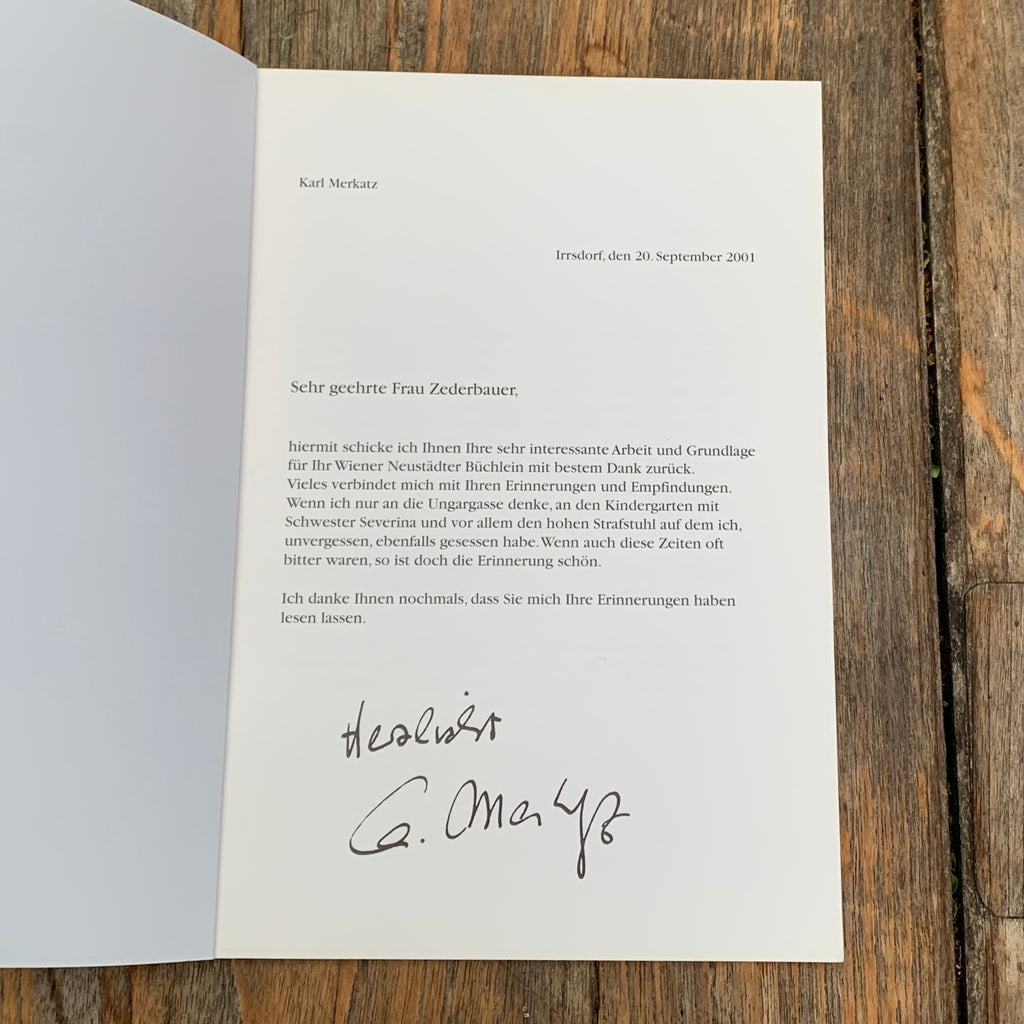 Karl Merkatz
Irrsdorf, den 20. September 2001
Sehr geehrte Frau Zederbauer,
hiermit schicke ich Ihnen Ihre sehr interessante Arbeit und Grundlage
für Ihr Wiener Neustädter Büchlein mit bestem Dank zurück.
Vieles verbindet mich mit Ihren Erinnerungen und Empfindungen.
Wenn ich nur an die Ungargasse denke, an den Kindergarten mit
Schwester Severina und vor allem den hohen Strafstuhl auf dem ich,
unvergessen, ebenfalls gesessen habe. Wenn auch diese Zeiten oft
bitter waren, so ist doch die Erinnerung schön.
Ich danke Ihnen nochmals, dass Sie mich Ihre Erinnerungen haben
lesen lassen.
Herzlichst
Ca. Merkatz